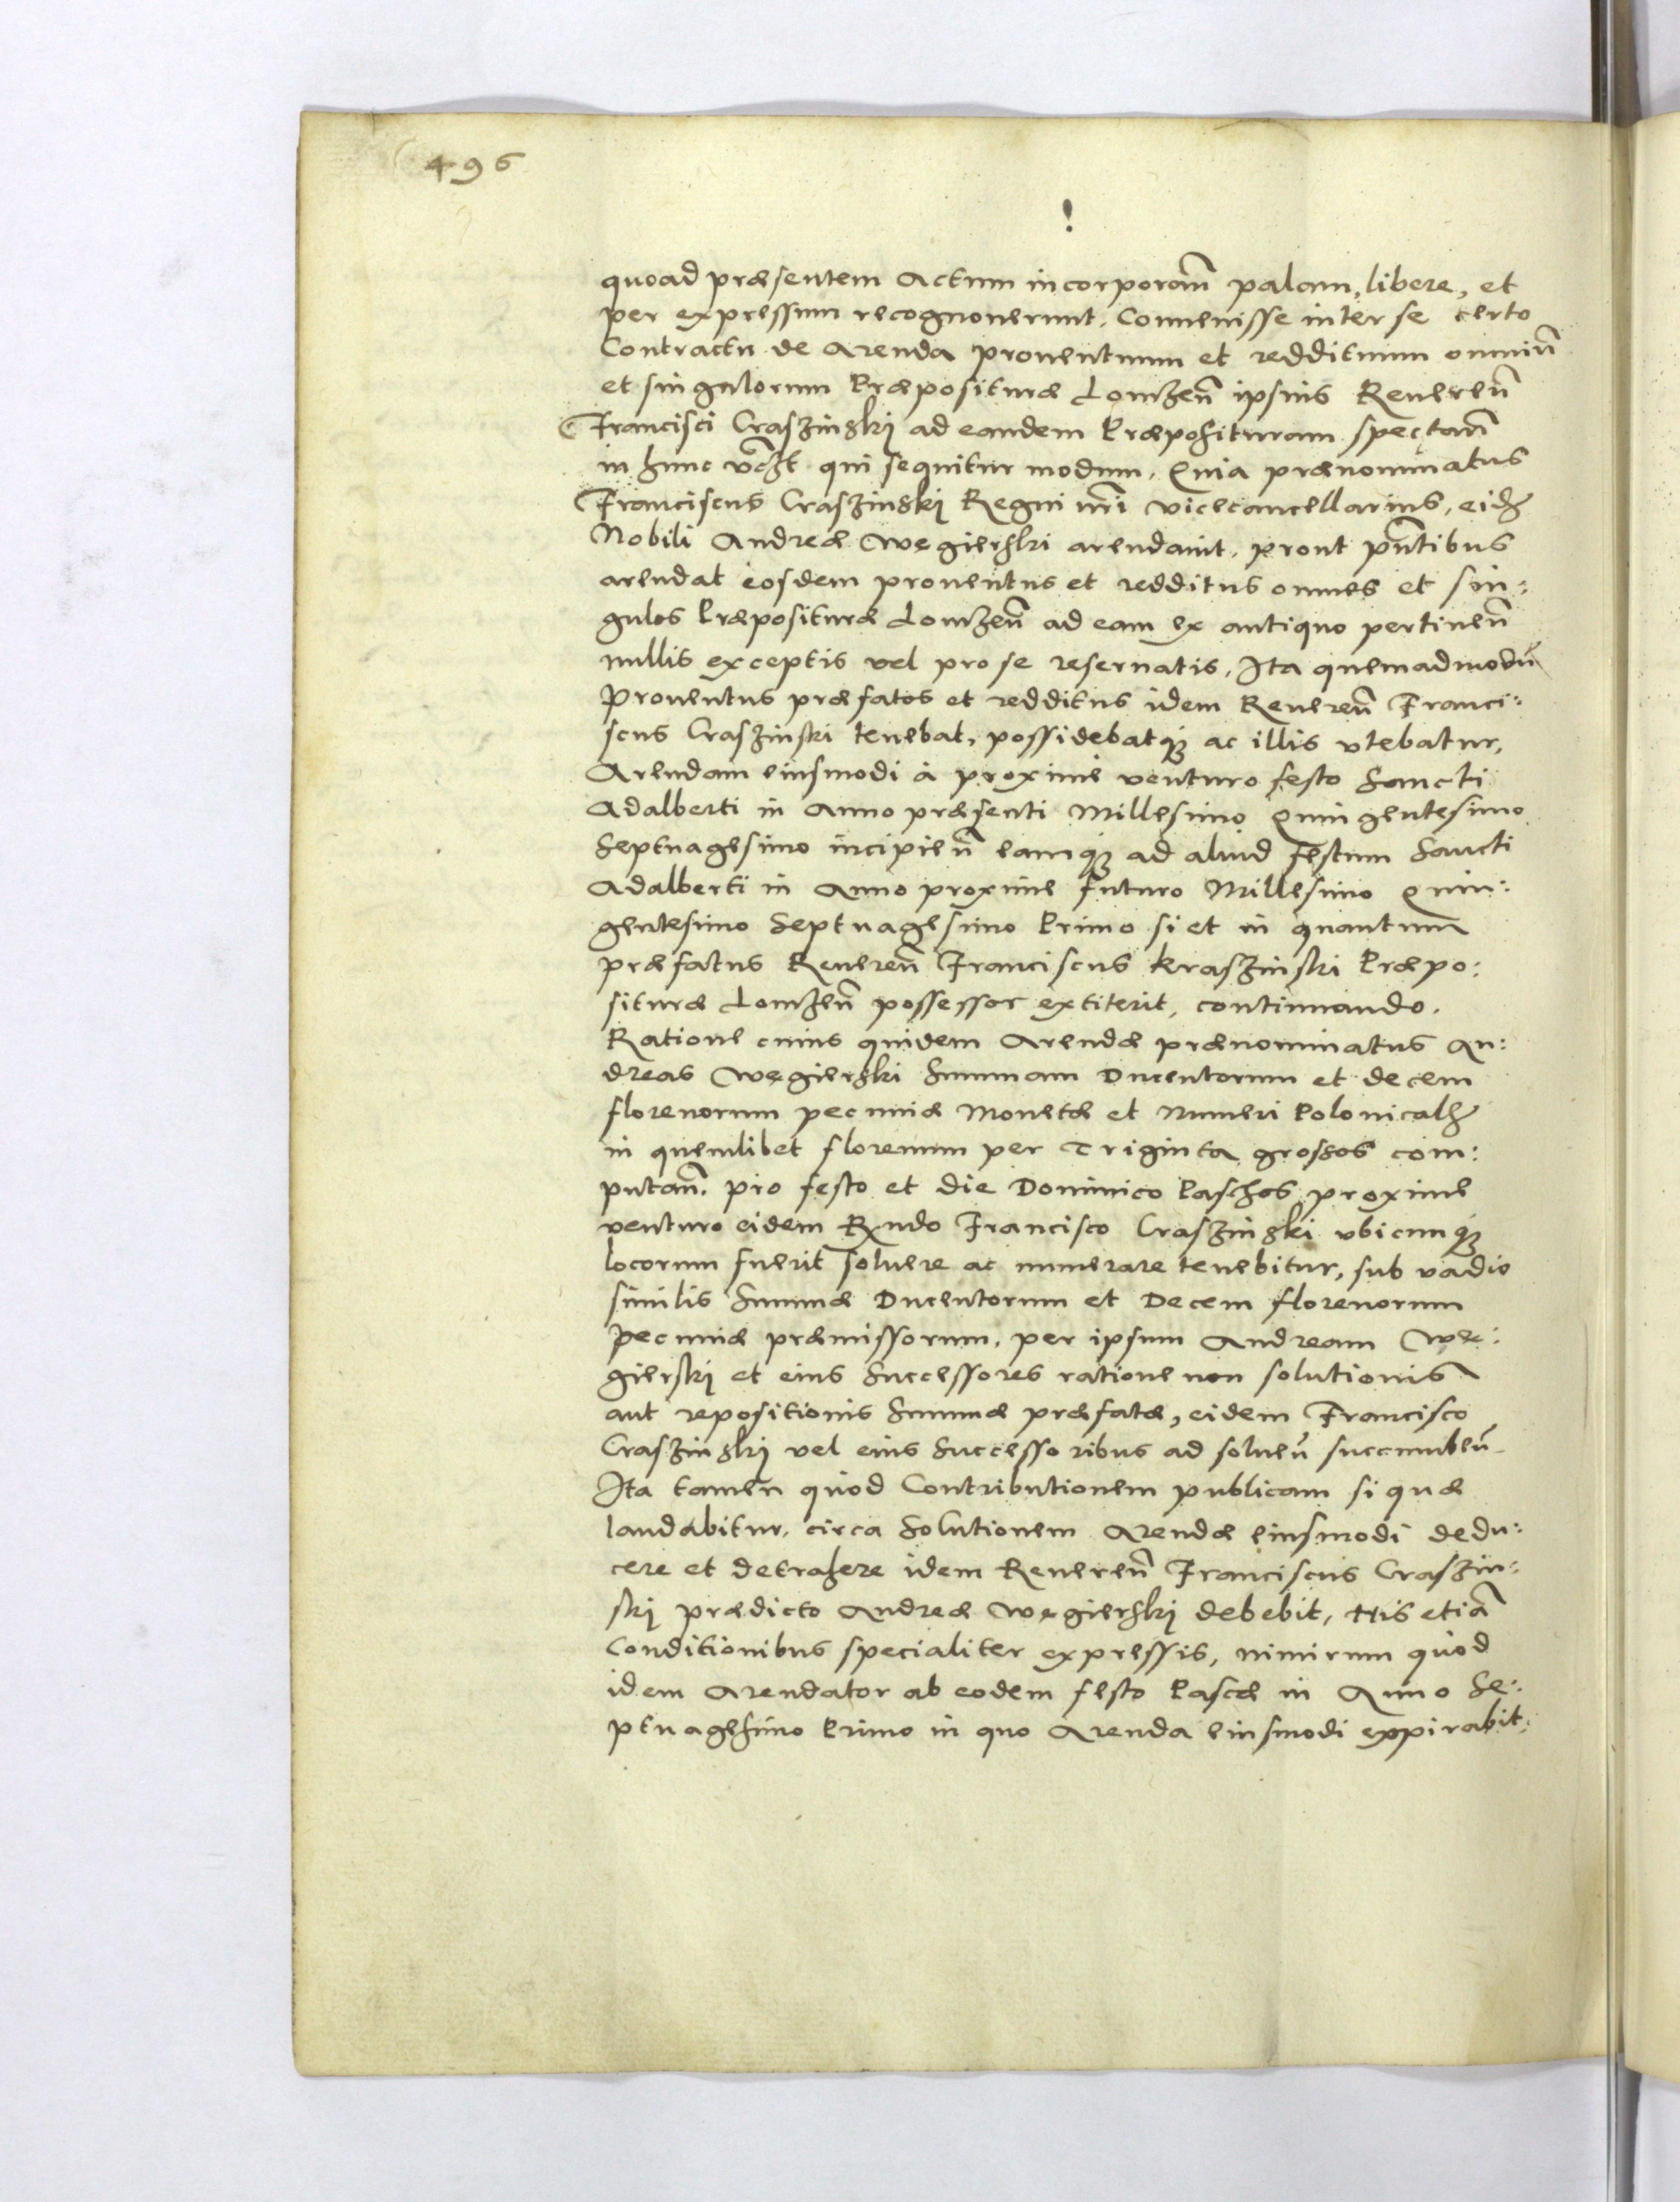 496
!
quoad præsentem Actum incorporan̄ palam, libere, et
per expressum recognouerunt. Conuenisse inter se certo
Contractu de Arenda prouentuum et reddituum omniū
et singulorum Præposituræ Lomzen̄ ipsius Reueren̄
Francisci Craszinski ad eandem Præposituram spectan̄
in hunc qui sequitur modum. Quia prænominatus
Franciscus Craszinski Regni nr̄i vicecancellarius, eidē
Nobili Andreæ Węgierski arendauit, prout pn̄tibus
arendat eosdem prouentus et redditus omnes et sin:
gulos Præposituræ Lomzen̄ ad eam ex antiquo pertinen̄
nullis exceptis vel pro se reseruatis. Ita quemadmodū
Prouentus præfatos et redditus idem Reueren̄ Franci:
scus Craszinski tenebat, possidebatqȝ ac illis vtebatur,
Arendam eiusmodi à proxime venturo festo Sancti
Adalberti in Anno præsenti Millesimo Quingentesimo
Septuagesimo incipien̄ eamqȝ ad aliud festum Sancti
Adalberti in Anno proxime futuro Millesimo Quin:
gentesimo Septuagesimo Primo si et in quantum
præfatus Reueren̄ Franciscus Kraszinski Præpo:
situræ Lomzen̄ possessor extiterit, continuando.
Ratione cuius quidem Arendæ prænominatus An:
dreas Węgierski Summam Ducentorum et decem
florenorum pecuniæ Monetæ et Numeri Polonicalꝭ
in quemlibet florenum per Triginta grossos com:
putan̄. pro festo et die Dominico Paschos proxime
venturo eidem Rn̄do Francisco Craszinski vbicunqȝ
locorum fuerit soluere ac numerare tenebitur, sub vadio
similis Summæ Ducentorum et Decem florenorum
pecuniæ præmissorum, per ipsum Andream We:
gierski et eius Successores ratione non solutionis
aut repositionis Summæ præfatæ, eidem Francisco
Craszinski vel eius Successoribus ad soluen̄ succumben̄
Ita tamen quod Contributionem publicam si quæ
laudabitur, circa Solutionem Arendæ eiusmodi dedu:
cere et detrahere idem Reueren̄ Franciscus Craszin:
ski prædicto Andreæ Węgierski debebit, His etiā
Conditionibus specialiter expressis, nimirum quod
idem Arendator ab eodem festo Pascæ in Anno Se:
ptuagesimo Primo in quo Arenda eiusmodi expirabit: